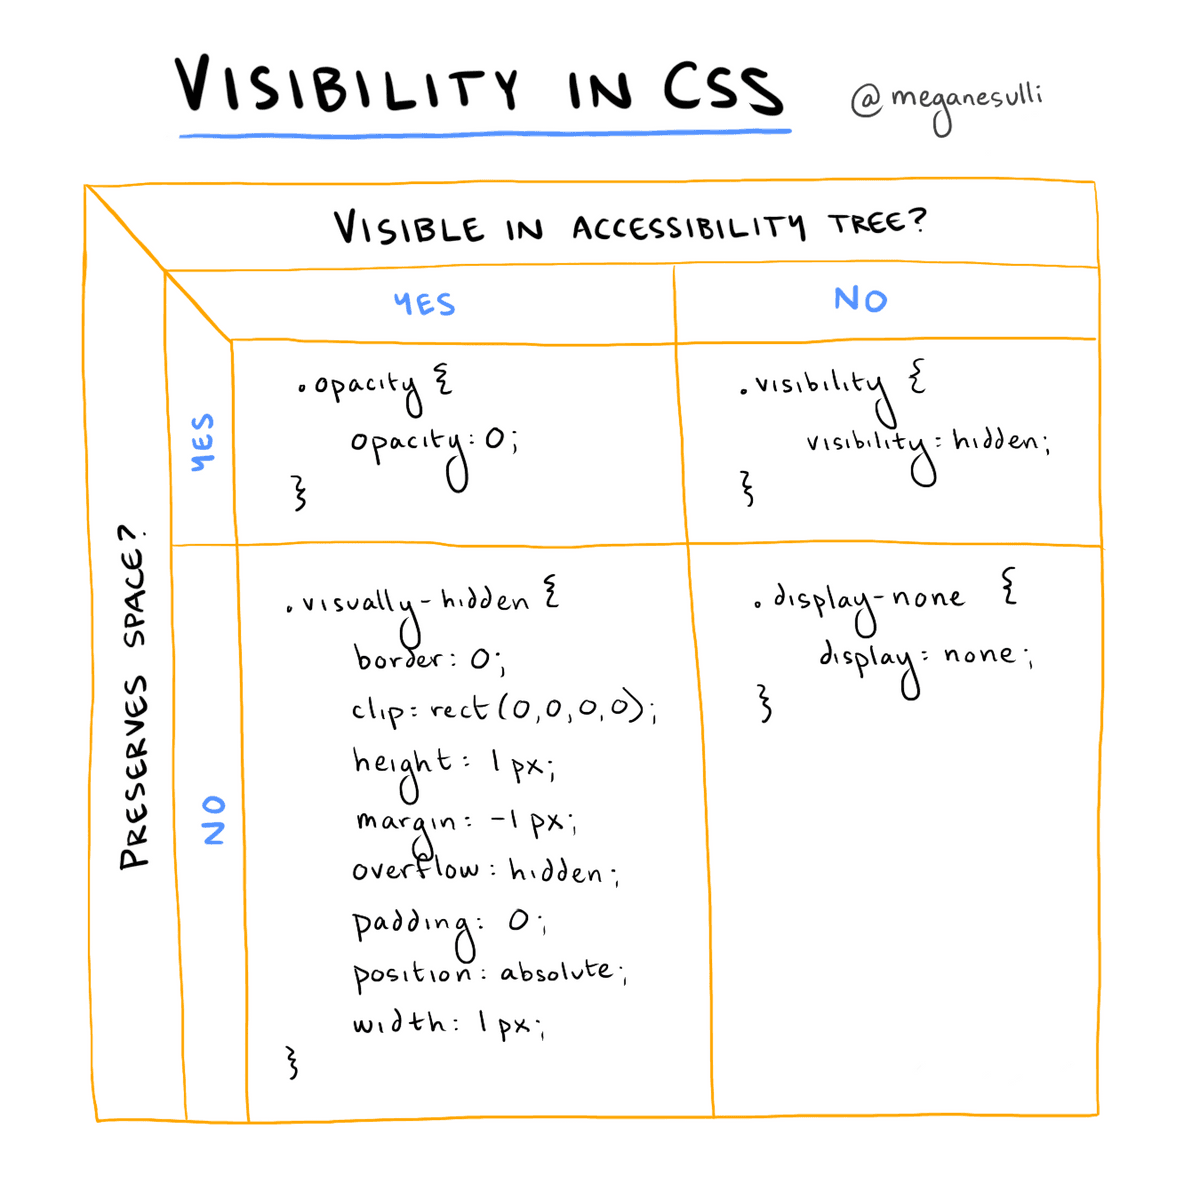 VISIBILITY IN CSS
@meganesulli
VISIBLE IN ACCESSIBILITY TREE?
YES
NO
PRESERVES SPACE?
YES
.opacity {
opacity: 0;
}
.visibility {
visibility: hidden;
}
NO
.visually-hidden {
border: 0;
clip: rect(0,0,0,0);
height: 1px;
margin: -1px;
overflow: hidden;
padding: 0;
position: absolute;
width: 1px;
}
.display-none {
display: none;
}